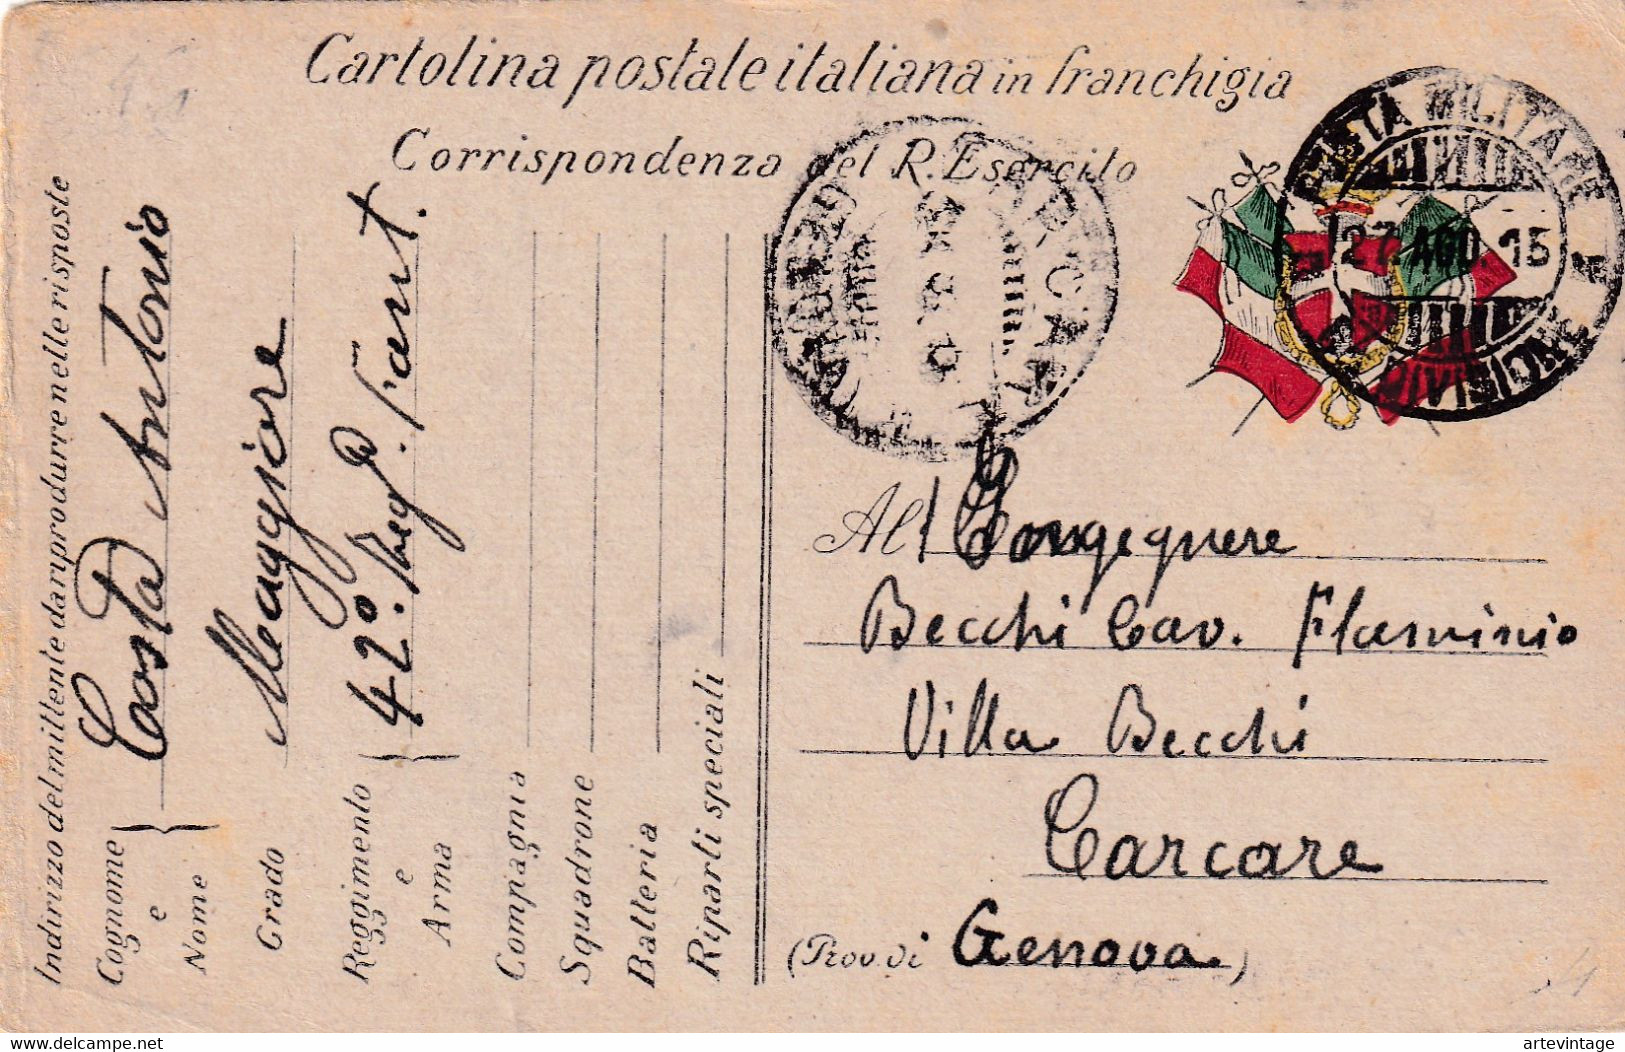 Cartolina postale italiana in franchigia
Corrispondenza del R. Esercito
POSTA MILITARE
27. AGO. 15
DIVISIONE
Indirizzo del mittente da riprodurre nelle risposte
Cognome e Nome
Costa Antonio
Grado
Maggiore
Reggimento e Arma
42º. Regg. Fant.
Compagnia
Squadrone
Batteria
Riparti speciali
All Ingegnere
Becchi Cav. Flaminio
Villa Becchi
Carcare
(Prov. di Genova)
delcampe.net
artevintage